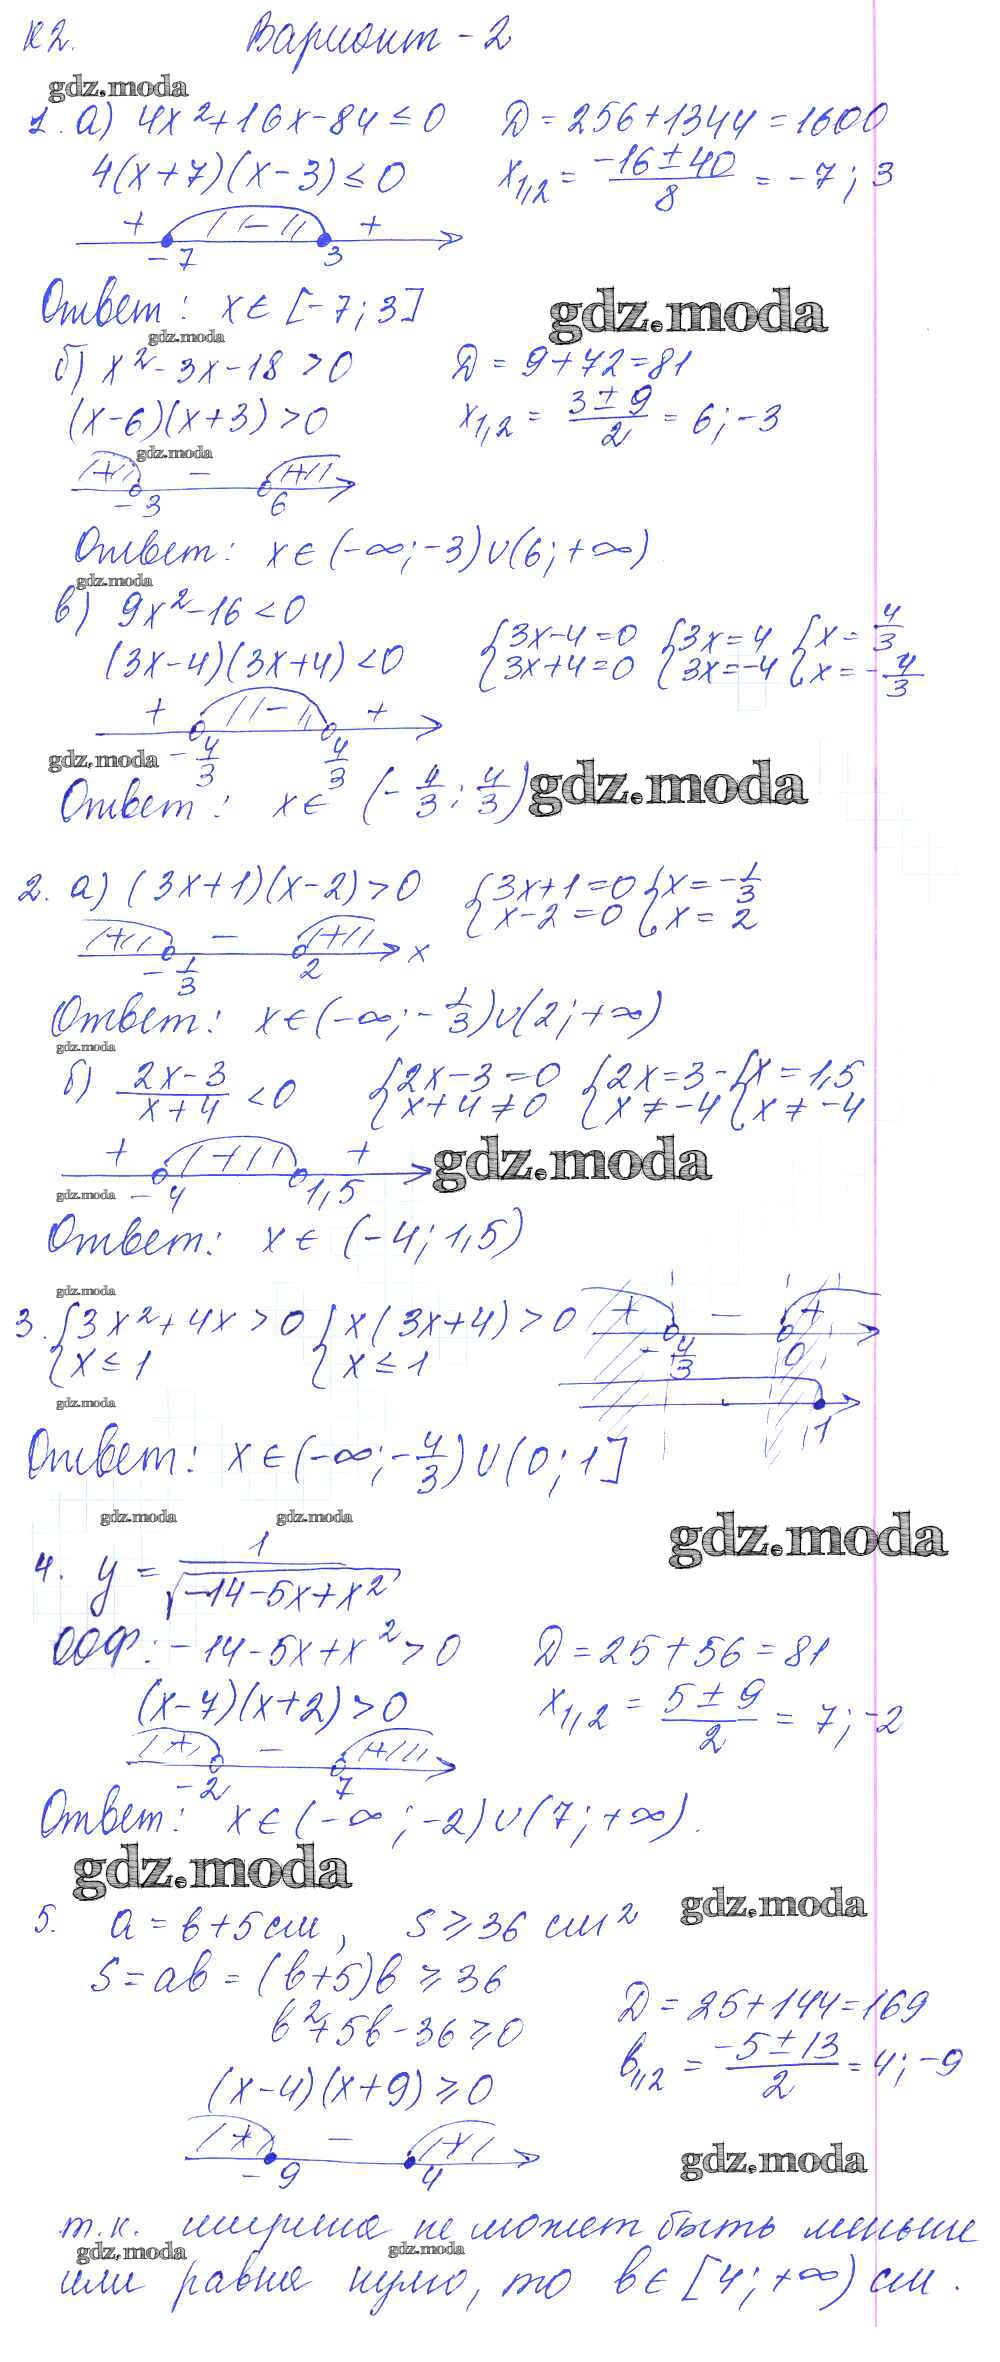 К2. Вариант - 2
gdz.moda
1. а) 4x²+16x-84≤0 D=256+1344=1600
4(x+7)(x-3)≤0 x₁,₂ = (-16±40)/8 = -7; 3
+ - +
-7 3
Ответ: x∈[-7;3]
gdz.moda
gdz.moda
б) x²-3x-18>0 D=9+72=81
(x-6)(x+3)>0 x₁,₂ = (3±9)/2 = 6;-3
gdz.moda
+ - +
-3 6
Ответ: x∈(-∞;-3)∪(6;+∞)
gdz.moda
в) 9x²-16<0
(3x-4)(3x+4)<0 {3x-4=0 {3x=4 {x=4/3
{3x+4=0 {3x=-4 {x=-4/3
+ - +
-4/3 4/3
gdz.moda
gdz.moda
Ответ: x∈(-4/3;4/3)
2. а) (3x+1)(x-2)>0 {3x+1=0 {x=-1/3
{x-2=0 {x=2
+ - + x
-1/3 2
Ответ: x∈(-∞;-1/3)∪(2;+∞)
gdz.moda
б) (2x-3)/(x+4) <0 {2x-3=0 {2x=3 - {x=1,5
{x+4≠0 {x≠-4 {x≠-4
+ + +
gdz.moda
-4 1,5
gdz.moda
Ответ: x∈(-4;1,5)
gdz.moda
3. {3x²+4x>0 {x(3x+4)>0 + - +
{x≤1 {x≤1 -4/3 0
gdz.moda
1
Ответ: x∈(-∞;-4/3)∪(0;1]
gdz.moda gdz.moda
gdz.moda
4. y = 1/√(-14-5x+x²)
ООФ: -14-5x+x²>0 D=25+56=81
(x-7)(x+2)>0 x₁,₂ = (5±9)/2 = 7;-2
+ - +
-2 7
Ответ: x∈(-∞;-2)∪(7;+∞).
gdz.moda
gdz.moda
5. a=b+5см, S≥36 см²
S=ab=(b+5)b≥36
b²+5b-36≥0 D=25+144=169
(x-4)(x+9)≥0 b₁,₂ = (-5±13)/2 = 4;-9
+ - +
-9 4
gdz.moda
т.к. ширина не может быть меньше
gdz.moda gdz.moda
или равна нулю, то b∈[4;+∞) см.